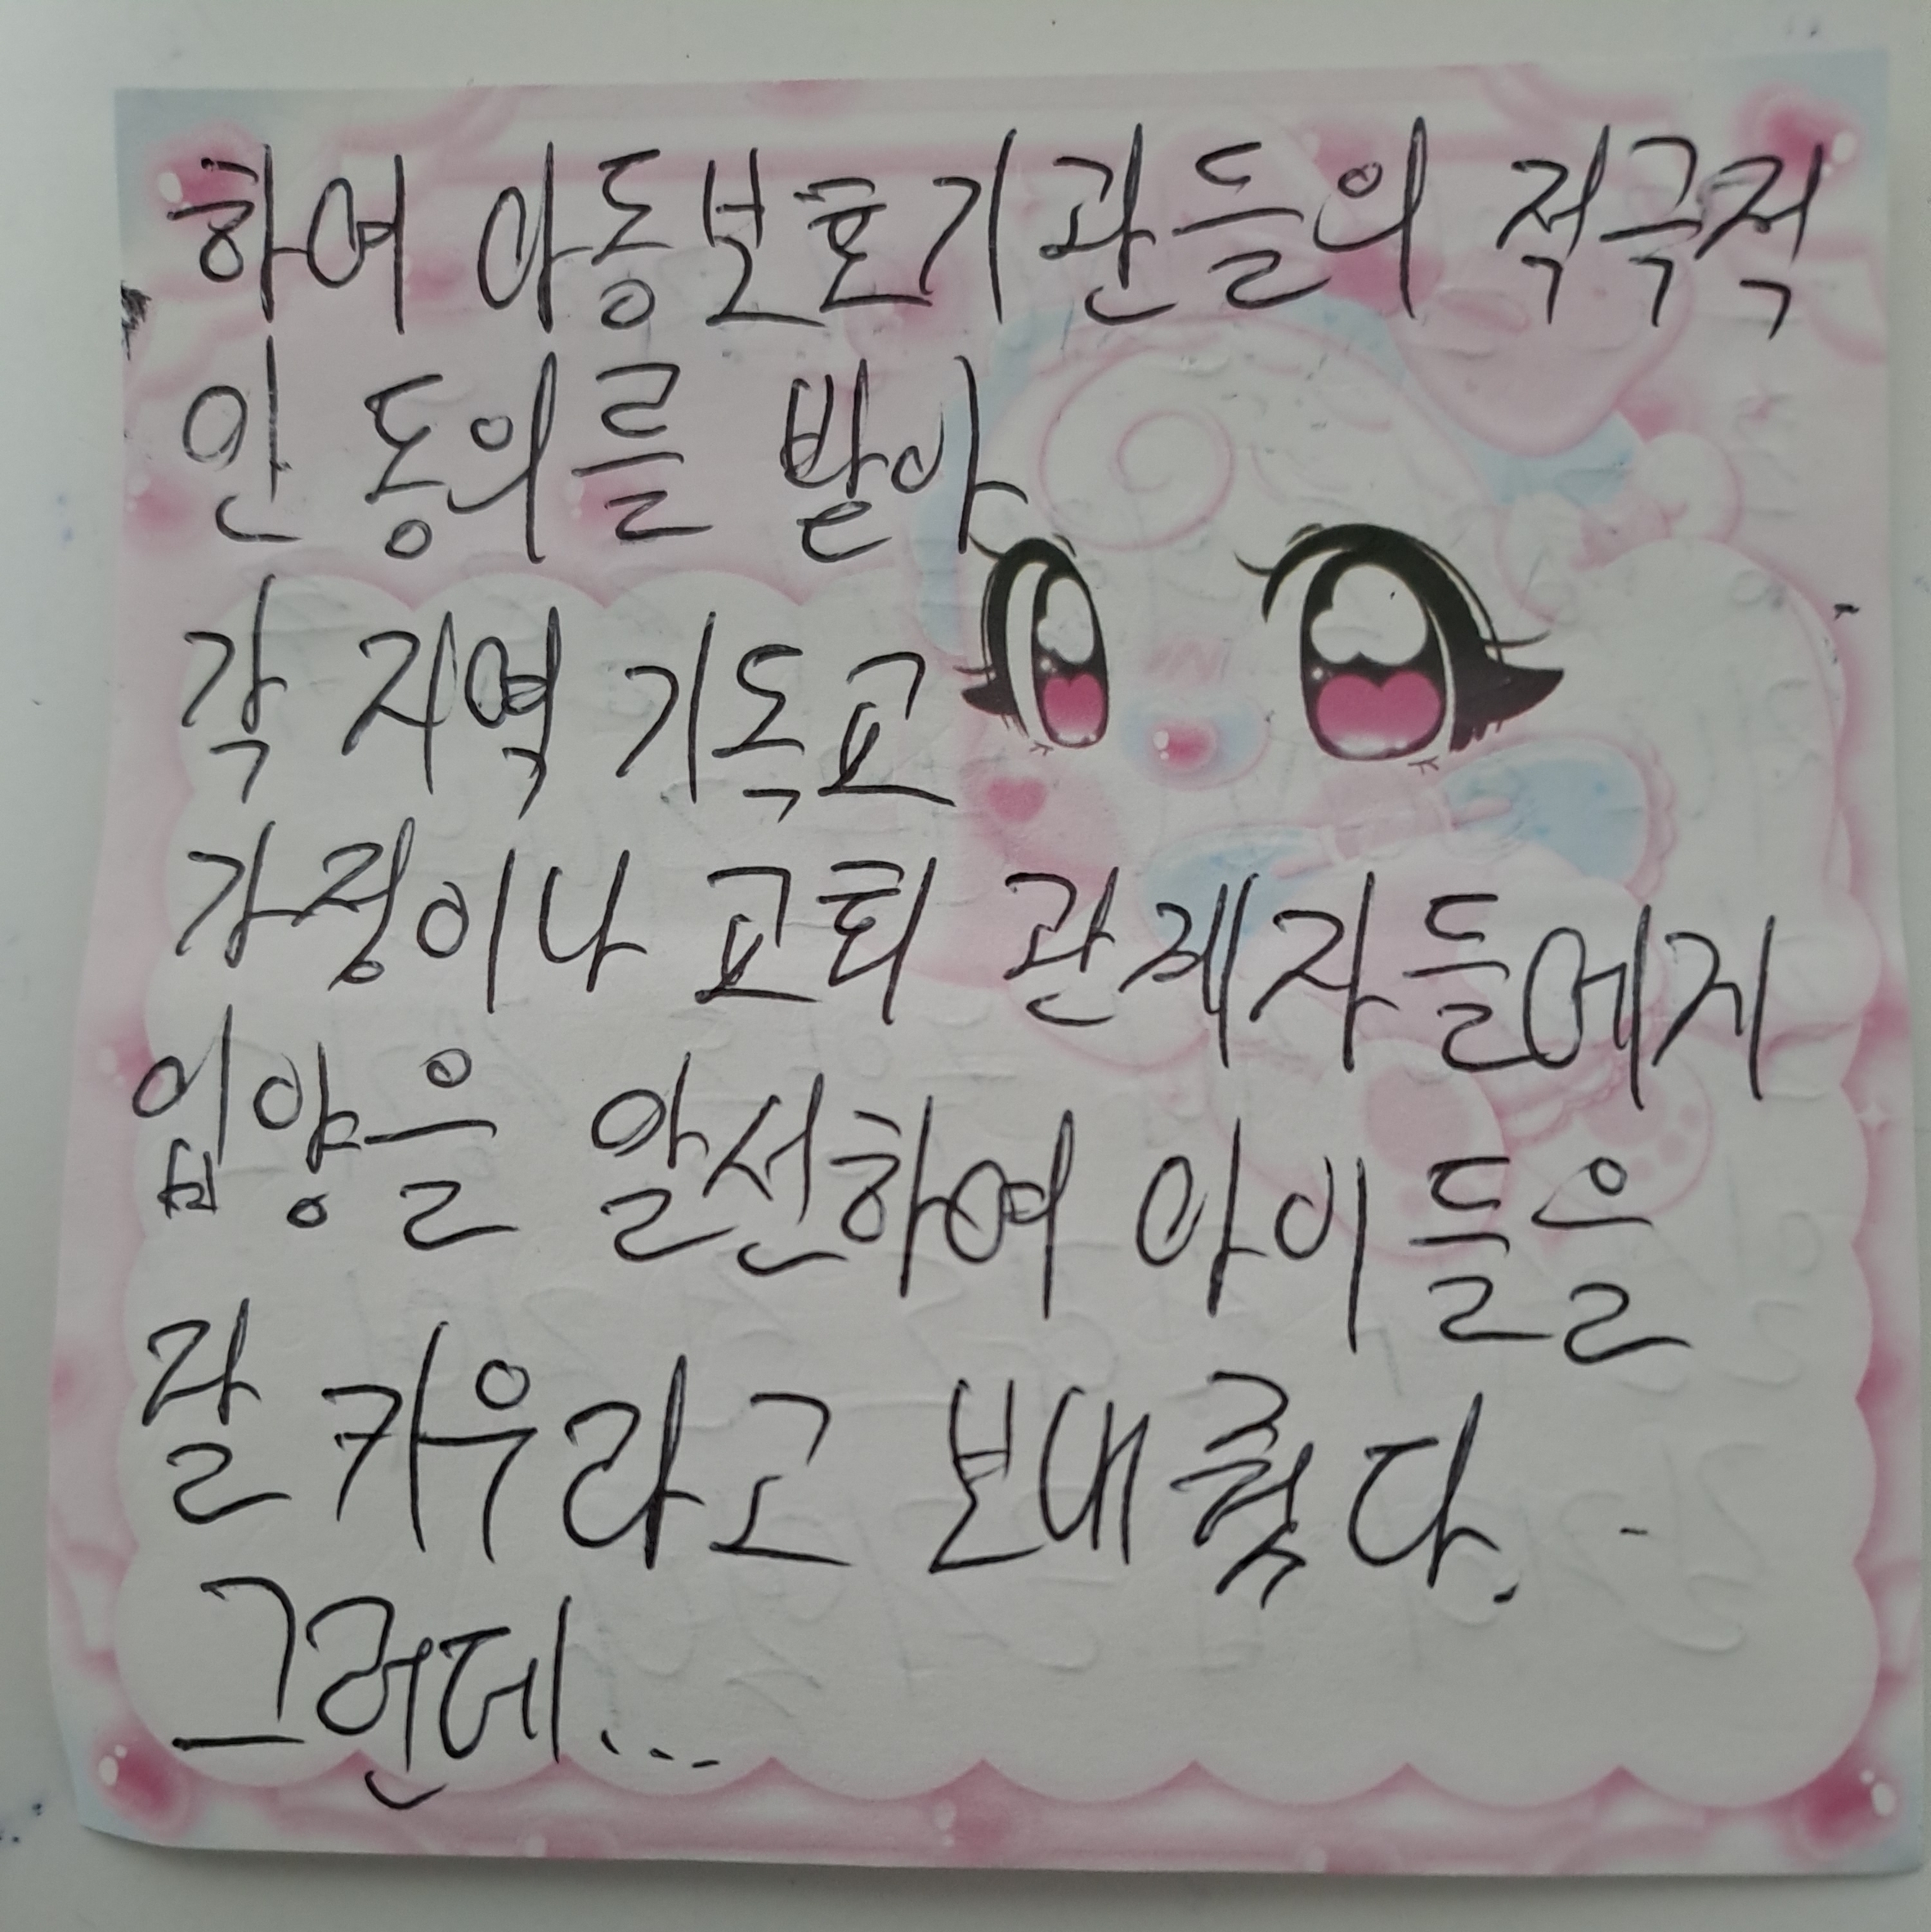 하여 아동보호기관들의 적극적
인 동의를 받아
각 지역 기독교
가정이나 교회 관계자들에게
입양을 알선하여 아이들을
잘 키우라고 보내줬다.
그런데...